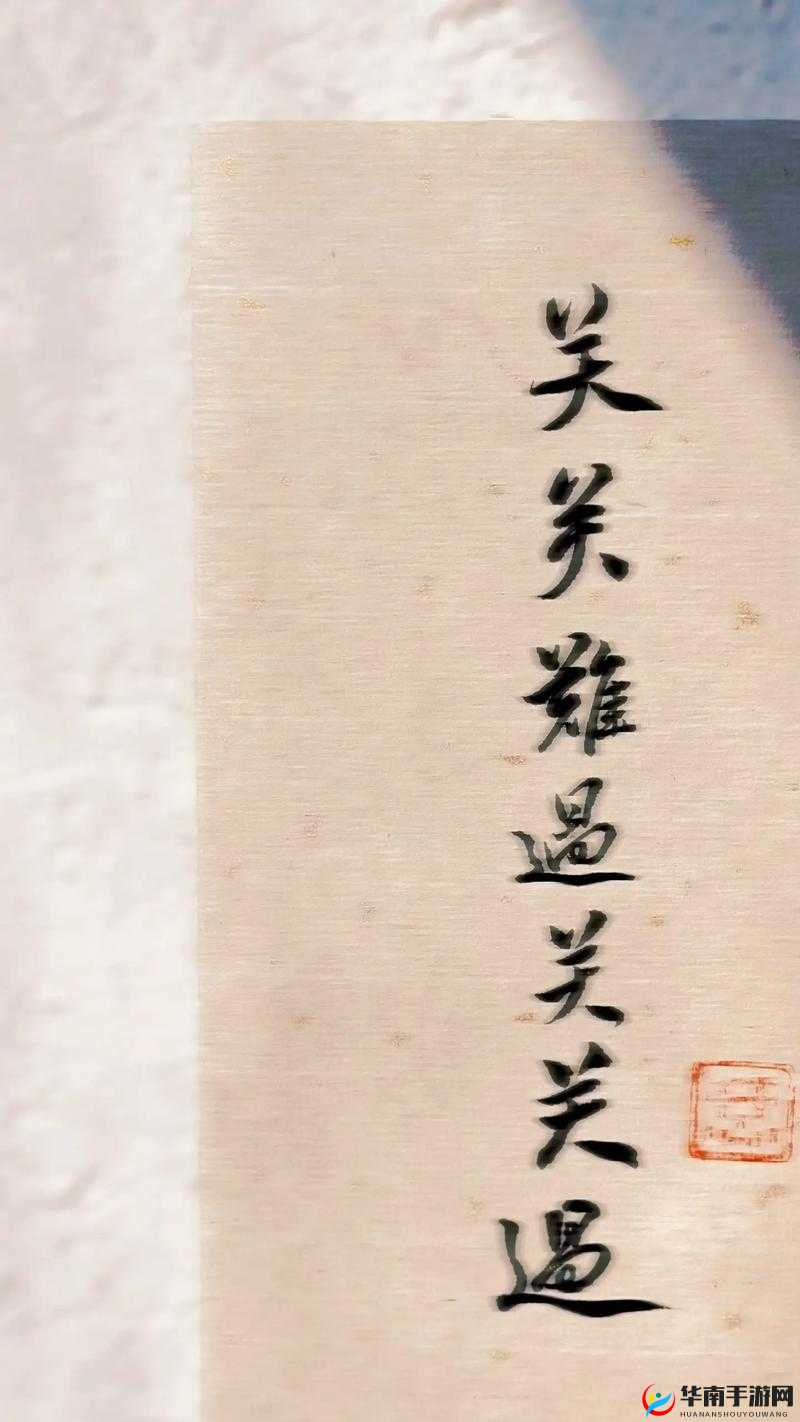 关关難過关关過
华南手游网
HUANANSHOUYOUWANG